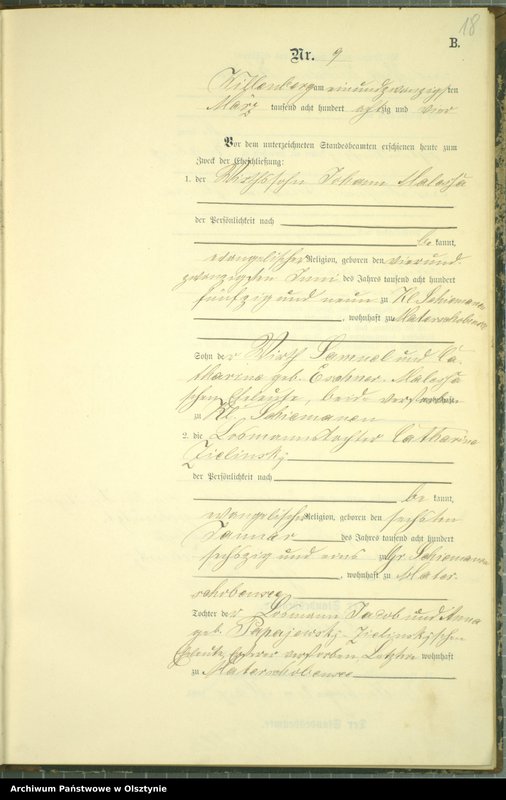 18
B.
Nr. 9
Willenberg am einundzwanzigsten
März tausend acht hundert achtzig und vier
Vor dem unterzeichneten Standesbeamten erschienen heute zum
Zweck der Eheschließung:
1. der Wirthssohn Johann
der Persönlichkeit nach
be kannt,
evangelischer Religion, geboren den vierund
zwanzigsten Juni des Jahres tausend acht hundert
fünfzig und neun zu Kl. Schiemanen
, wohnhaft zu Materschobensee
Sohn der Wirth Samuel und Ca-
tharina geb.
schen Eheleute, beide verstorben
zu Kl. Schiemanen
2. die Losmannstochter Catharina
Zielinsky
der Persönlichkeit nach
be kannt,
evangelischer Religion, geboren den sechsten
Januar des Jahres tausend acht hundert
sechszig und eins zu Gr. Schiemanen
, wohnhaft zu Mater-
schobensee
Tochter der Losmann Jacob und Anna
geb. Papajewski Zielinsky'schen
Eheleute, Ersterer verstorben Letztere wohnhaft
zu Materschobensee
Archiwum Państwowe w Olsztynie